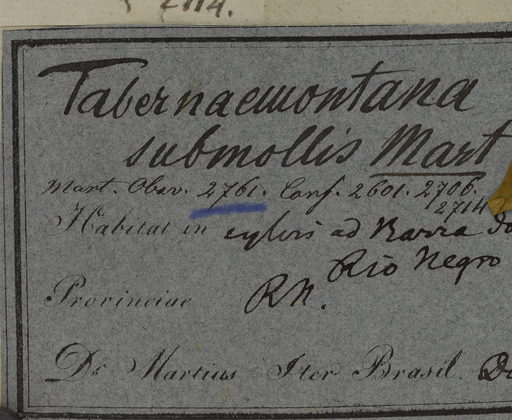 2114.
Tabernaemontana
submollis Mart
Mart. Obsv. 2761. Conf. 2601. 2706.
2714
Habitat in sylvis ad Barra do
Rio Negro
Provinciae RN.
Dr Martius Iter Brasil.